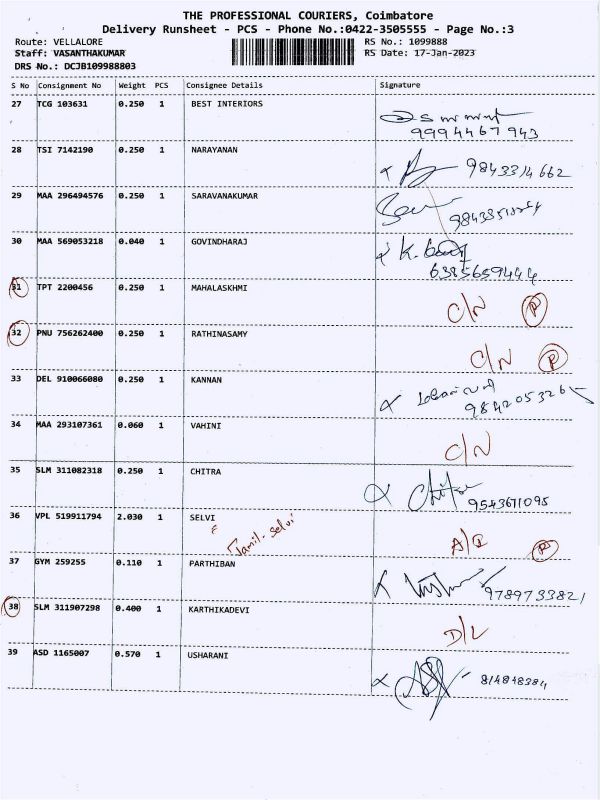 THE PROFESSIONAL COURIERS, Coimbatore
Delivery Runsheet - PCS - Phone No.:0422-3505555 - Page No.:3
Route: VELLALORE
RS No.: 1099888
Staff: VASANTHAKUMAR
RS Date: 17-Jan-2023
DRS No.: DCJB109988803
S No Consignment No Weight PCS Consignee Details Signature
27 TCG 103631 0.250 1 BEST INTERIORS
9994467943
28 TSI 7142190 0.250 1 NARAYANAN
9843314662
29 MAA 296494576 0.250 1 SARAVANAKUMAR
30 MAA 569053218 0.040 1 GOVINDHARAJ
6385659444
31 TPT 2200456 0.250 1 MAHALASKHMI
C/N P
32 PNU 756262400 0.250 1 RATHINASAMY
C/N P
33 DEL 910066080 0.250 1 KANNAN
9842053265
34 MAA 293107361 0.060 1 VAHINI
C/N
35 SLM 311082318 0.250 1 CHITRA
Chitra 9543671095
36 VPL 519911794 2.030 1 SELVI
Tamil-selvi
P
37 GYM 259255 0.110 1 PARTHIBAN
9789733821
38 SLM 311907298 0.400 1 KARTHIKADEVI
D/L
39 ASD 1165007 0.570 1 USHARANI